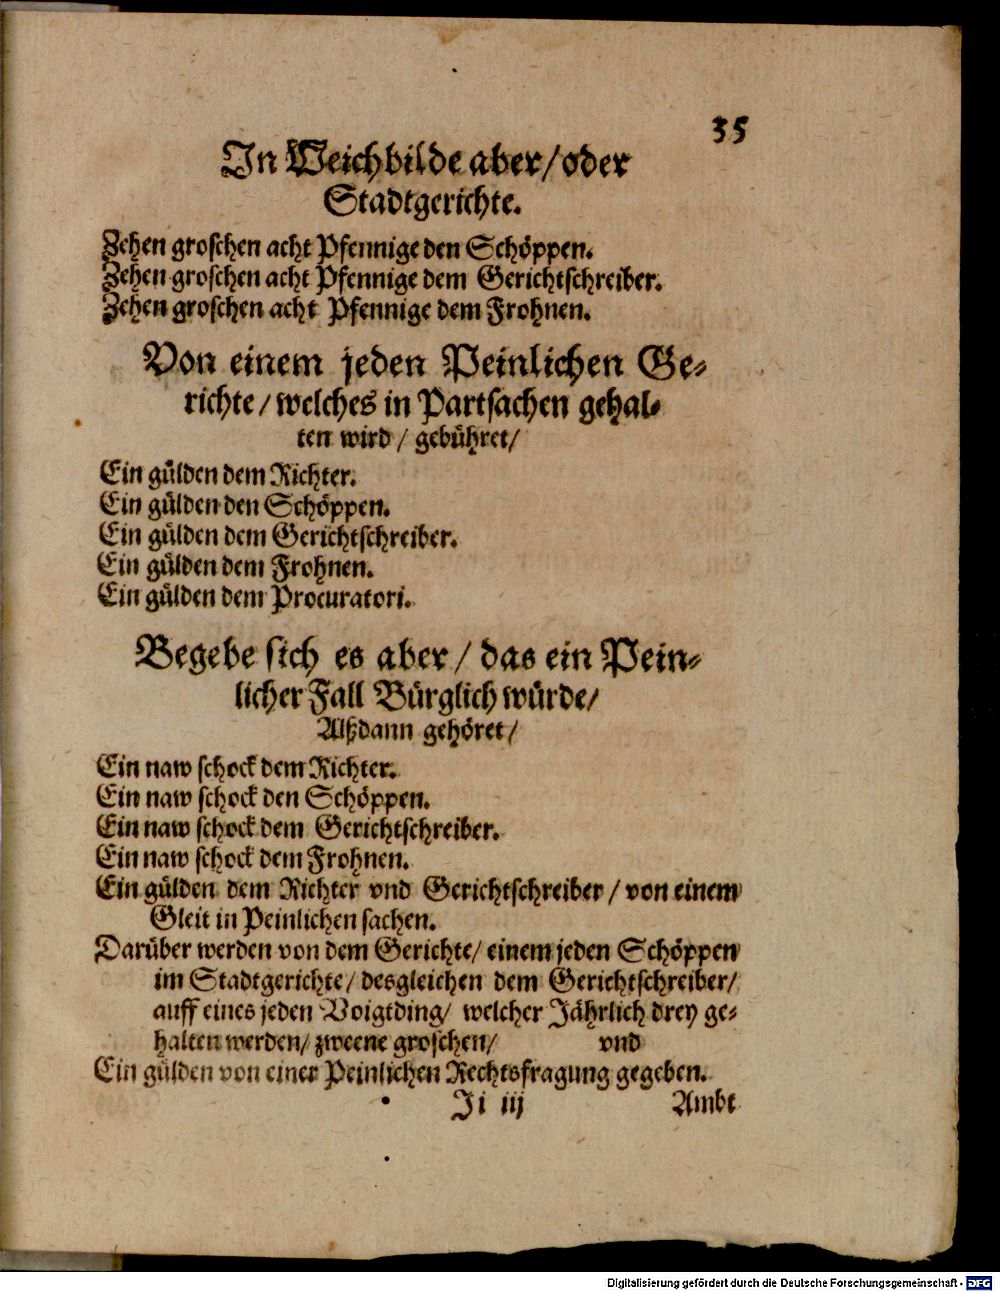 35
In Weichbilde aber/ oder
Stadtgerichte.
Zehen groschen acht Pfennige den Schöppen.
Zehen groschen acht Pfennige dem Gerichtschreiber.
Zehen groschen acht Pfennige dem Frohnen.
Von einem jeden Peinlichen Ge-
richte/ welches in Partsachen gehal-
ten wird/ gebühret/
Ein gülden dem Richter.
Ein gülden den Schöppen.
Ein gülden dem Gerichtschreiber.
Ein gülden dem Frohnen.
Ein gülden dem Procuratori.
Begebe sich es aber/ das ein Pein-
licher Fall Bürglich würde/
Alßdann gehöret/
Ein naw schock dem Richter.
Ein naw schock den Schöppen.
Ein naw schock dem Gerichtschreiber.
Ein naw schock dem Frohnen.
Ein gülden dem Richter vnd Gerichtschreiber/ von einem
Gleit in Peinlichen sachen.
Darüber werden von dem Gerichte/ einem jeden Schöppen
im Stadtgerichte/ desgleichen dem Gerichtschreiber/
auff eines jeden Voigtding/ welcher Jährlich drey ge-
halten werden/ zweene groschen/ vnd
Ein gülden von einer Peinlichen Rechtsfragung gegeben.
Ji iij Ambt
Digitalisierung gefördert durch die Deutsche Forschungsgemeinschaft - DFG